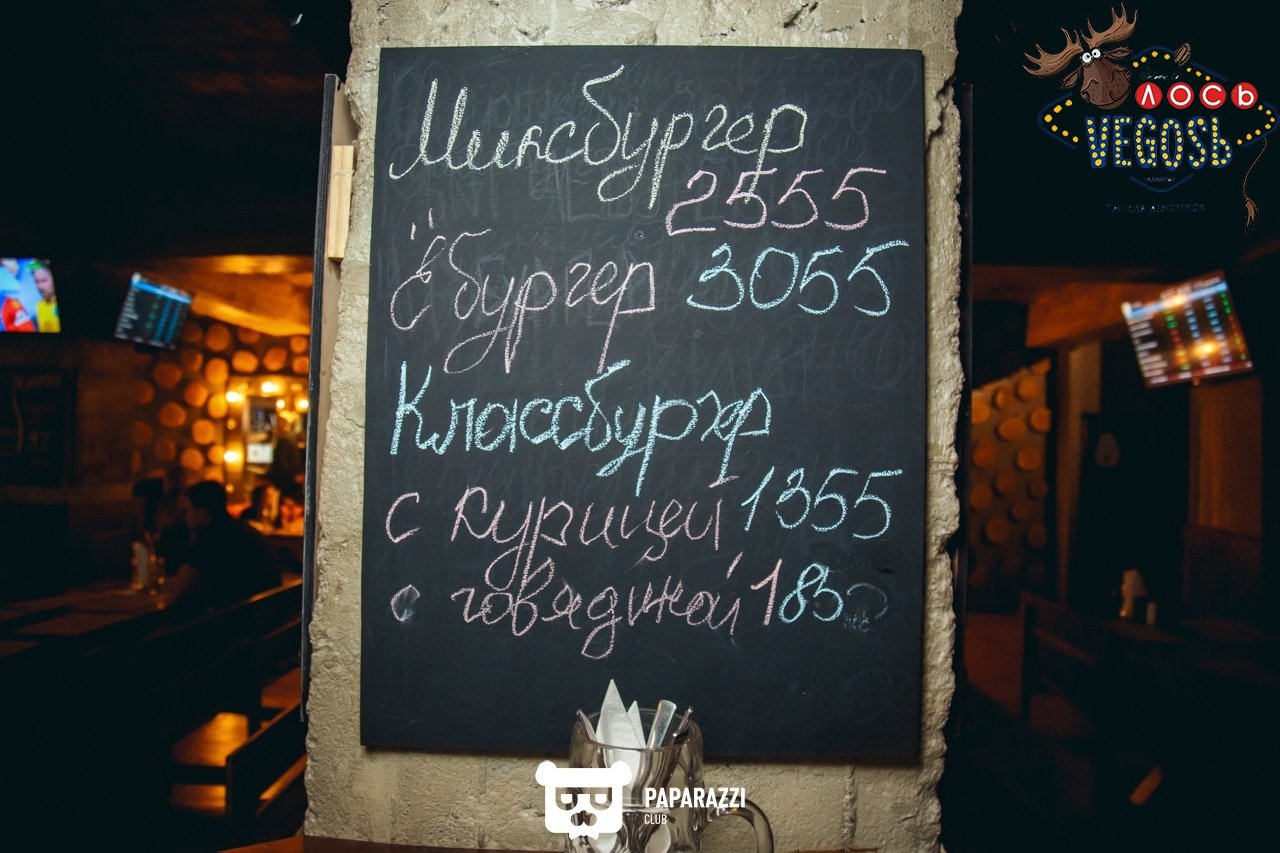 Миксбургер
2555
ёбургер 3055
Классбургер
с курицей 1355
с говядиной 185
ЛОСЬ
VEGOSЬ
PAPARAZZI
CLUB